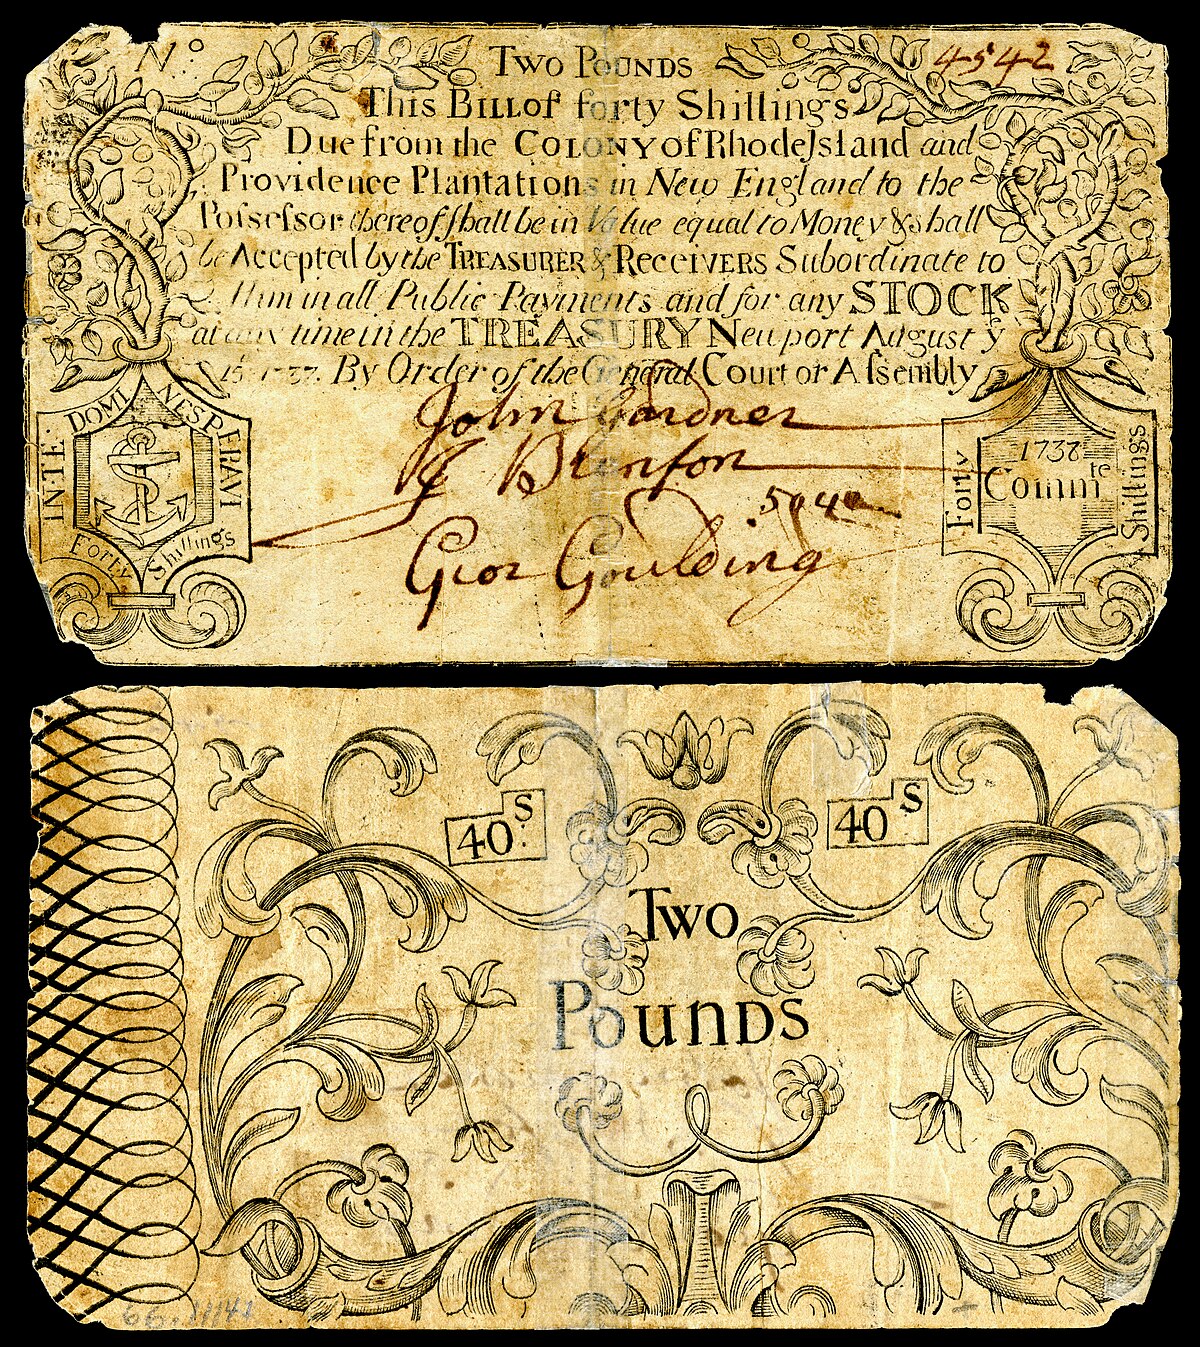 Nº
4542
Two Pounds
This Bill of forty Shillings
Due from the Colony of Rhode Island and
Providence Plantations in New England to the
Possessor thereof shall be in Value equal to Money & shall
be Accepted by the Treasurer & Receivers Subordinate to
Him in all Public Payments and for any STOCK
at any time in the TREASURY Newport August yᵉ
15 1737. By Order of the General Court or Assembly
John Gardner
Geoz Goulding
INTE DOMINE SPERAVI
Forty Shillings
1738
Commᵗᵉ
Forty Shillings
40ˢ
40ˢ
Two
Pounds